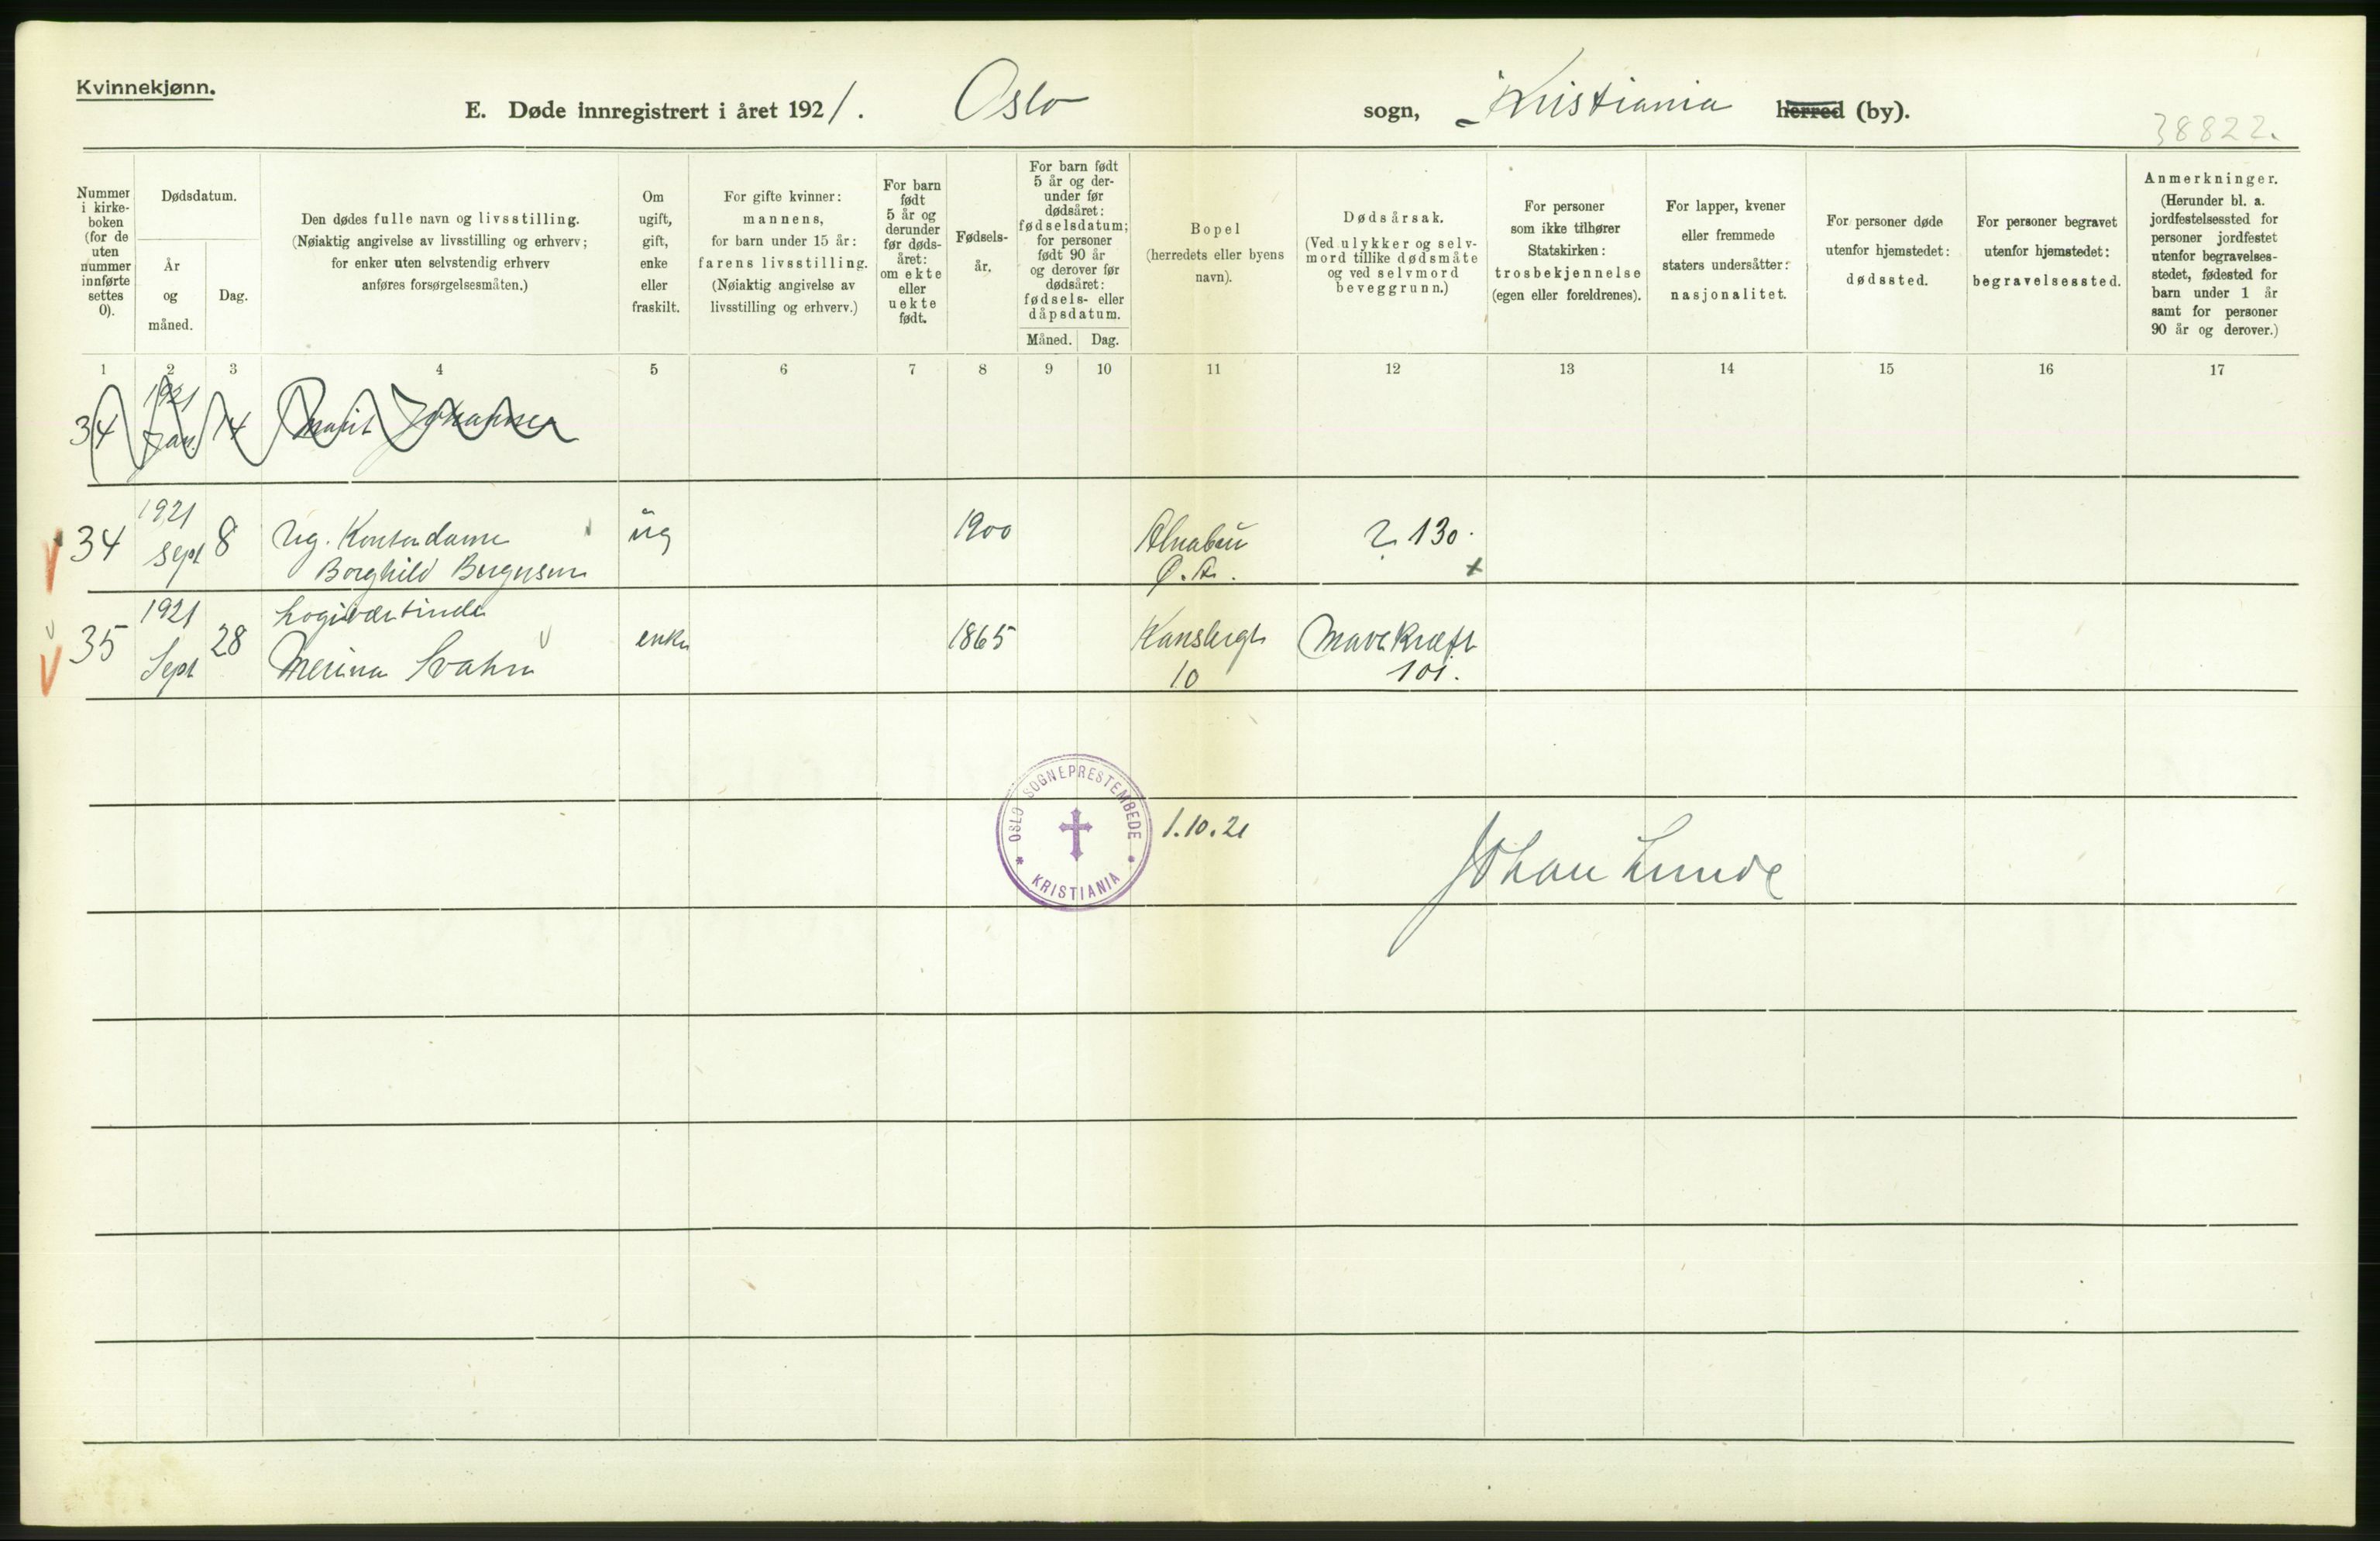 Kvinnekjønn.
E. Døde innregistrert i året 1921. Oslo sogn, Kristiania herred (by).
38822.
Nummer i kirke-
boken
(for de
uten
nummer
innførte
settes
0).
Dødsdatum.
År
og
måned.
Dag.
Den dødes fulle navn og livsstilling.
(Nøiaktig angivelse av livsstilling og erhverv;
for enker uten selvstendig erhverv
anføres forsørgelsesmåten.)
Om
ugift,
gift,
enke
eller
fraskilt.
For gifte kvinner:
mannens,
for barn under 15 år:
farens livsstilling.
(Nøiaktig angivelse av
livsstilling og erhverv.)
For barn
født
5 år og
derunder
før døds-
året:
om ekte
eller
uekte
født.
Fødsels-
år.
For barn født
5 år og der-
under før
dødsåret:
fødselsdatum;
for personer
født 90 år
og derover før
dødsåret:
fødsels- eller
dåpsdatum.
Måned. Dag.
Bopel
(herredets eller byens
navn).
Dødsårsak.
(Ved ulykker og selv-
mord tillike dødsmåte
og ved selvmord
beveggrunn.)
For personer
som ikke tilhører
Statskirken:
trosbekjennelse
(egen eller foreldrenes).
For lapper, kvener
eller fremmede
staters undersåtter:
nasjonalitet.
For personer døde
utenfor hjemstedet:
dødssted.
For personer begravet
utenfor hjemstedet:
begravelsessted.
Anmerkninger.
(Herunder bl. a.
jordfestelsessted for
personer jordfestet
utenfor begravelses-
stedet, fødested for
barn under 1 år
samt for personer
90 år og derover.)
1 2 3 4 5 6 7 8 9 10 11 12 13 14 15 16 17
1921
34 Jan. 14 Marit Johansen
1921
34 Sept 8 Ug. Kontordame ug 1900 Alnabru ? 130.
Borghild Bergersen Ø. A. x
1921 Logivertinde
35 Sept 28 enke 1865 Mavekræft
Merina Svahn 10 101.
OSLO SOGNEPRESTEMBEDE
KRISTIANIA
1.10.21
Johan Lunde